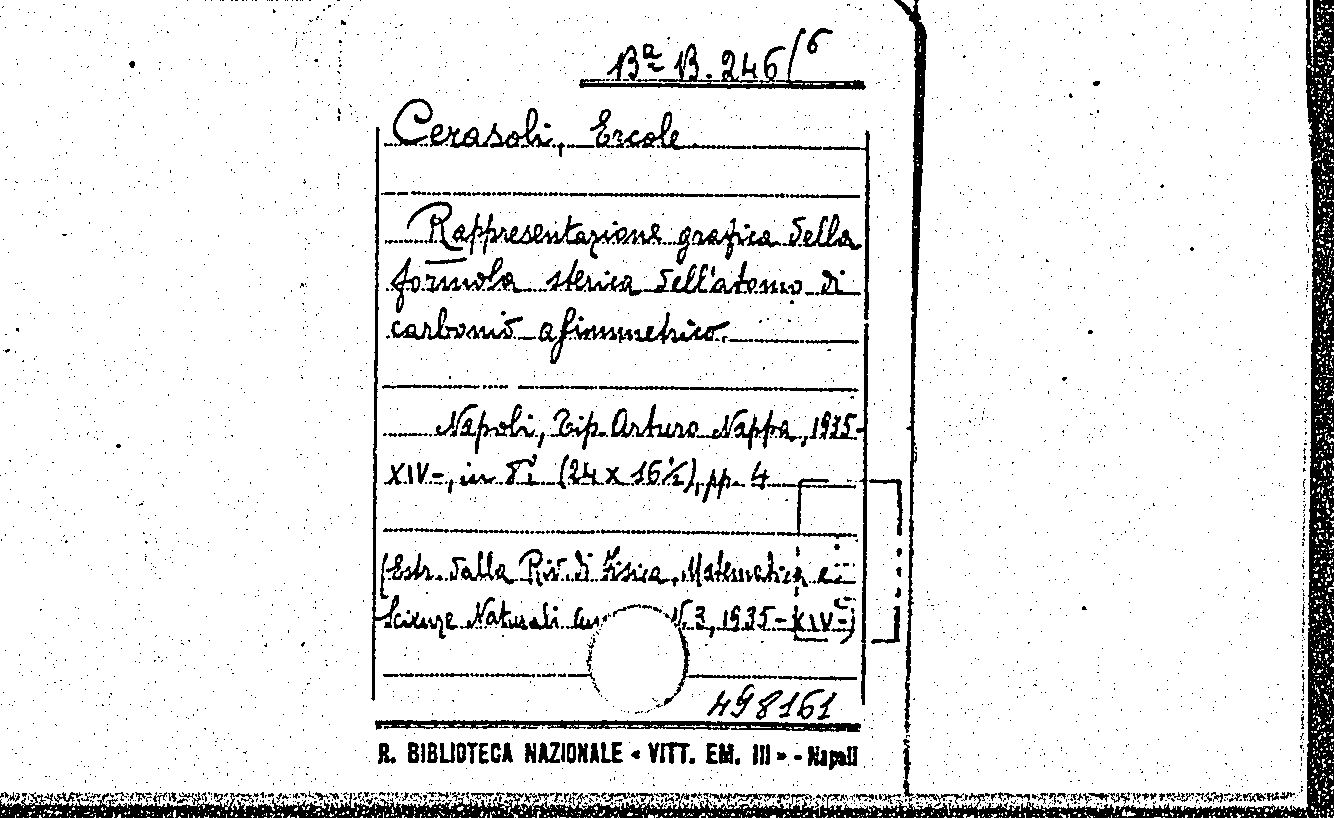 Bª B. 246/6
Cerasoli, Ercole
Rappresentazione grafica della
formola sterica dell'atomo di
carbonio asimmetrico.
Napoli, Tip. Arturo Nappa, 1935-
XIV-, in 8º (24 x 16½), pp. 4
(Estr. dalla Riv. di Fisica, Matematica e
Scienze Naturali N. 3, 1935-XIV-)
498161
R. BIBLIOTECA NAZIONALE « VITT. EM. III » - Napoli